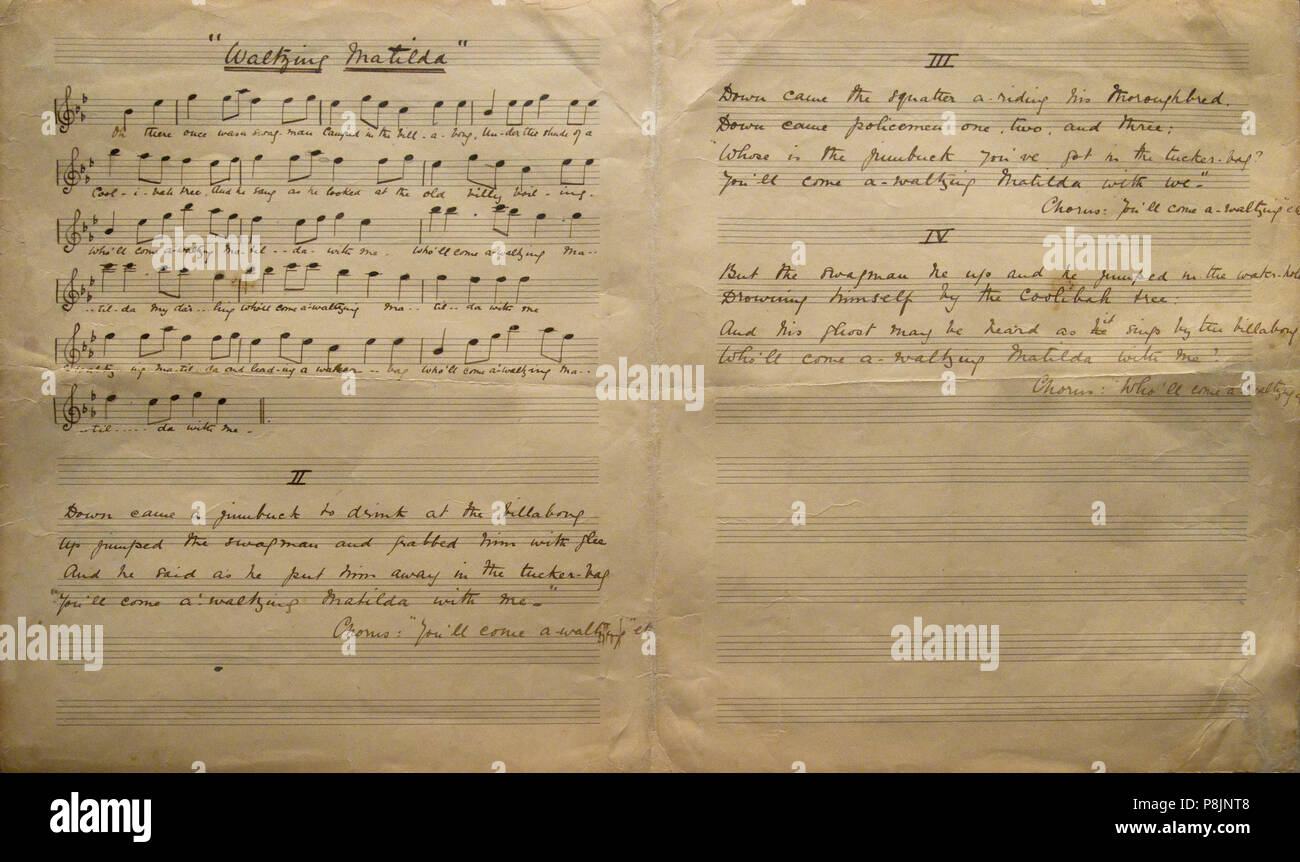 "Waltzing Matilda"
Oh there once was a swag-man camped in the bill-a-bong, Un-der the shade of a
Cool-i-bah tree. And he sang as he looked at the old billy boil-ing.
Who'll come a-waltzing ma-til--da- with me. Who'll come a-waltzing Ma--
--til-da my dar--ling who'll come a-waltzing ma--til--da with me
Waltz-ing Ma-til-da and lead-ing a water--bag Who'll come a-waltzing Ma--
--til----da with me.
II
Down came a jumbuck to drink at the billabong
Up jumped the swagman and grabbed him with glee
And he said as he put him away in the tucker-bag
"You'll come a-waltzing Matilda with me."
Chorus: "You'll come a-waltzing" et
III
Down came the squatter a-riding his thoroughbred.
Down came policemen one, two, and three;
"Whose is the jumbuck you've got in the tucker-bag?
You'll come a-waltzing Matilda with we."
Chorus: You'll come a-waltzing"
IV
But the swagman he up and he jumped in the water-hole
Drowning himself by the Coolibah tree:
And his ghost may be heard as it sings by the billabong
Who'll come a-waltzing Matilda with me?
Chorus: "Who'll come a-waltzing
alamy
alamy stock photo
P8JNT8
www.alamy.com